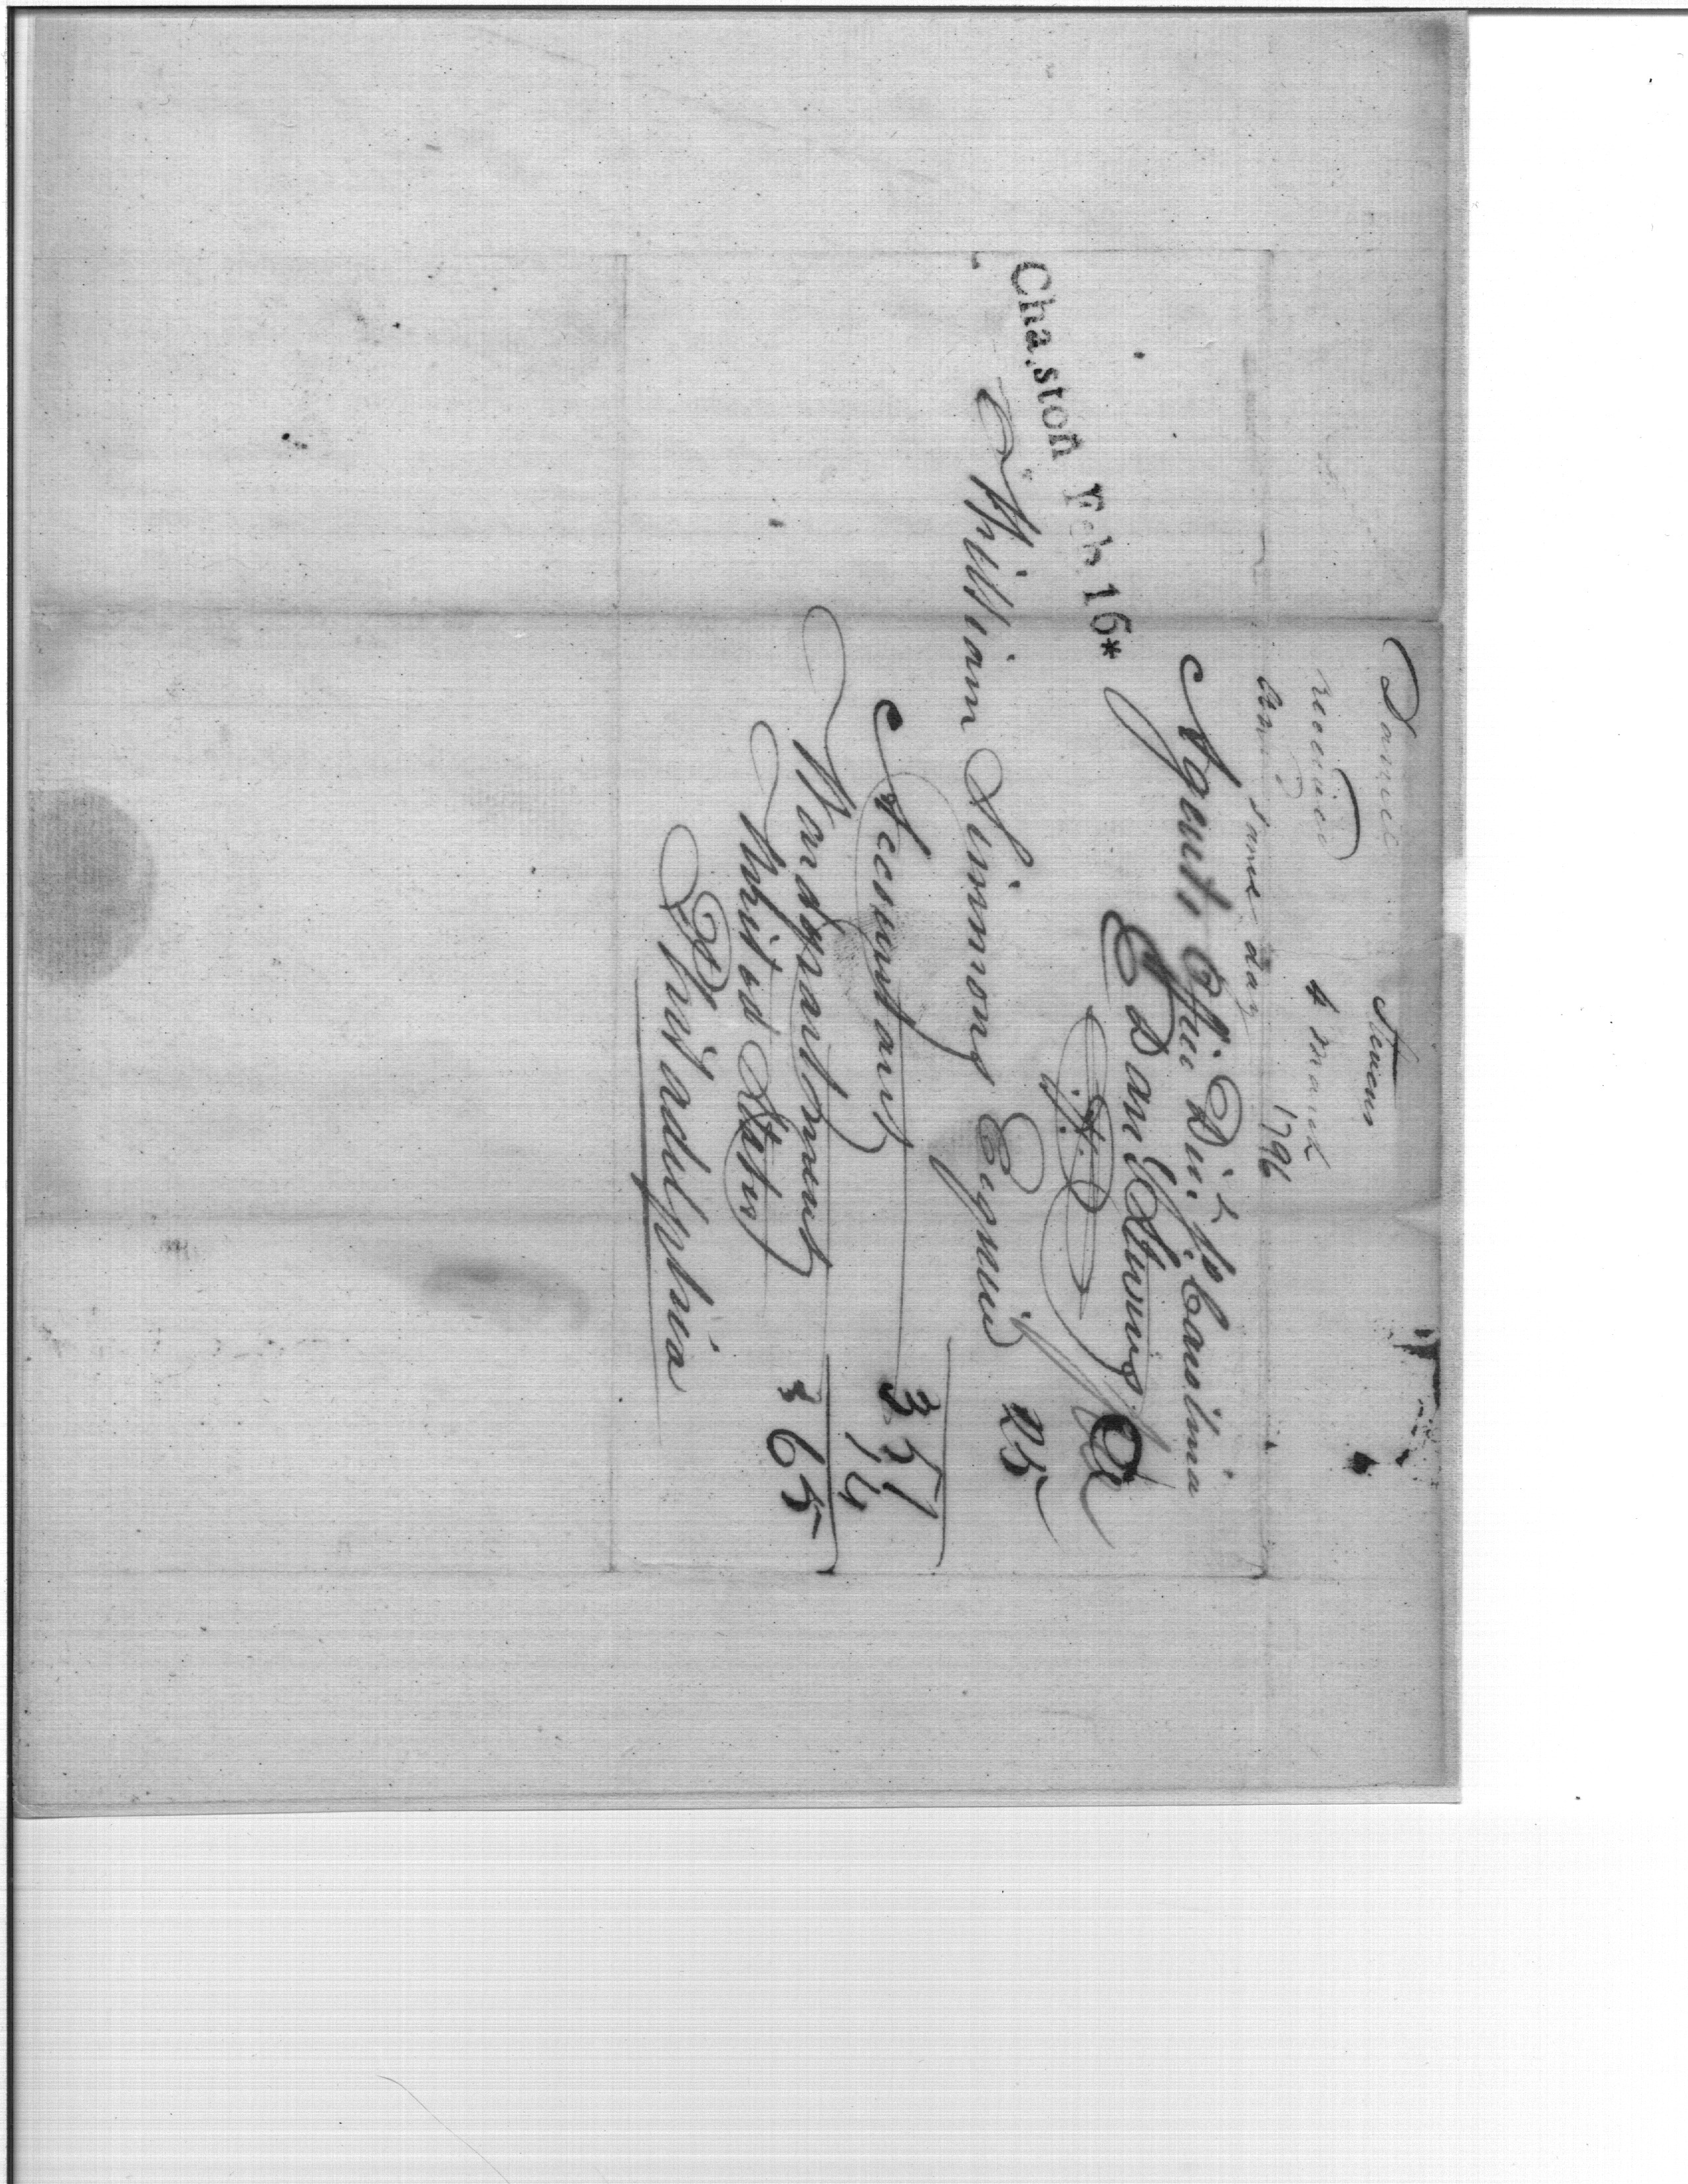 Daniel Stevens
received 4 March 1796
same day
Agents Office Dist. So. Carolina
Danl. Stevens
Cha.ston Feb 16*
William Simmons Esquire
25
Accountant
War Department
351
14
United States
365
Philadelphia